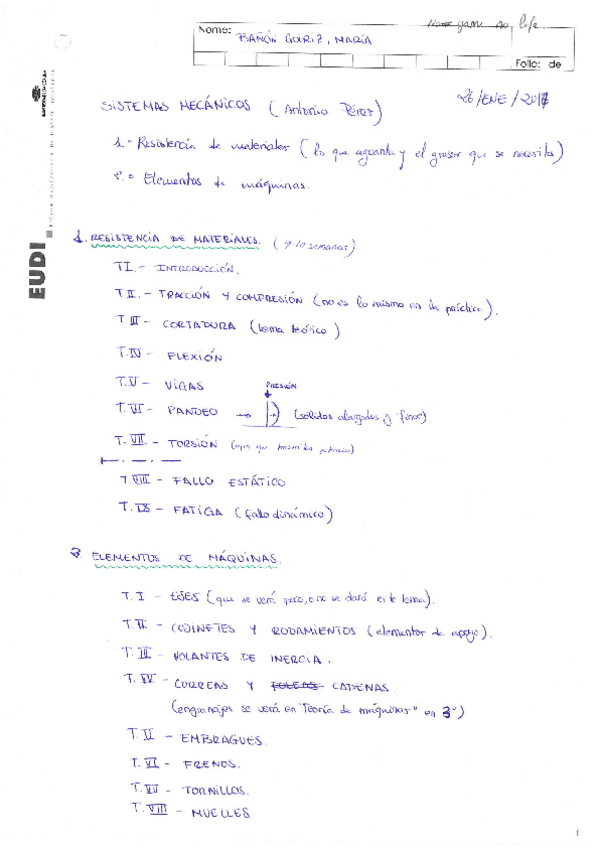 no life
Nome: BAÑÓN GORIZ, MARÍA
Folio: de
EUDI
26/ENE/2017
SISTEMAS MECÁNICOS (Antonio Pérez)
1.º Resistencia de materiales (lo que aguanta y el grosor que se necesita)
2.º Elementos de máquinas.
1. RESISTENCIA DE MATERIALES. (9/10 semanas)
T I.- INTRODUCCIÓN.
T II.- TRACCIÓN Y COMPRESIÓN (no es lo mismo en la práctica).
T III- CORTADURA (tema teórico)
T. IV- FLEXIÓN
T. V- VIGAS
PRESIÓN
T. VI- PANDEO → (sólidos alargados y finos)
T. VII.- TORSIÓN (ejes que transmiten potencia)
T. VIII - FALLO ESTÁTICO
T. IX - FATIGA (fallo dinámico)
2 ELEMENTOS DE MÁQUINAS.
T. I - EJES (que se verá pero, no se dará en el tema).
T. II - COJINETES Y RODAMIENTOS (elementos de apoyo).
T. III - VOLANTES DE INERCIA.
T. IV - CORREAS Y POLEAS CADENAS.
(engranajes se verá en "Teoría de máquinas" en 3º)
T. V - EMBRAGUES.
T. VI - FRENOS.
T. VII - TORNILLOS.
T. VIII - MUELLES
1